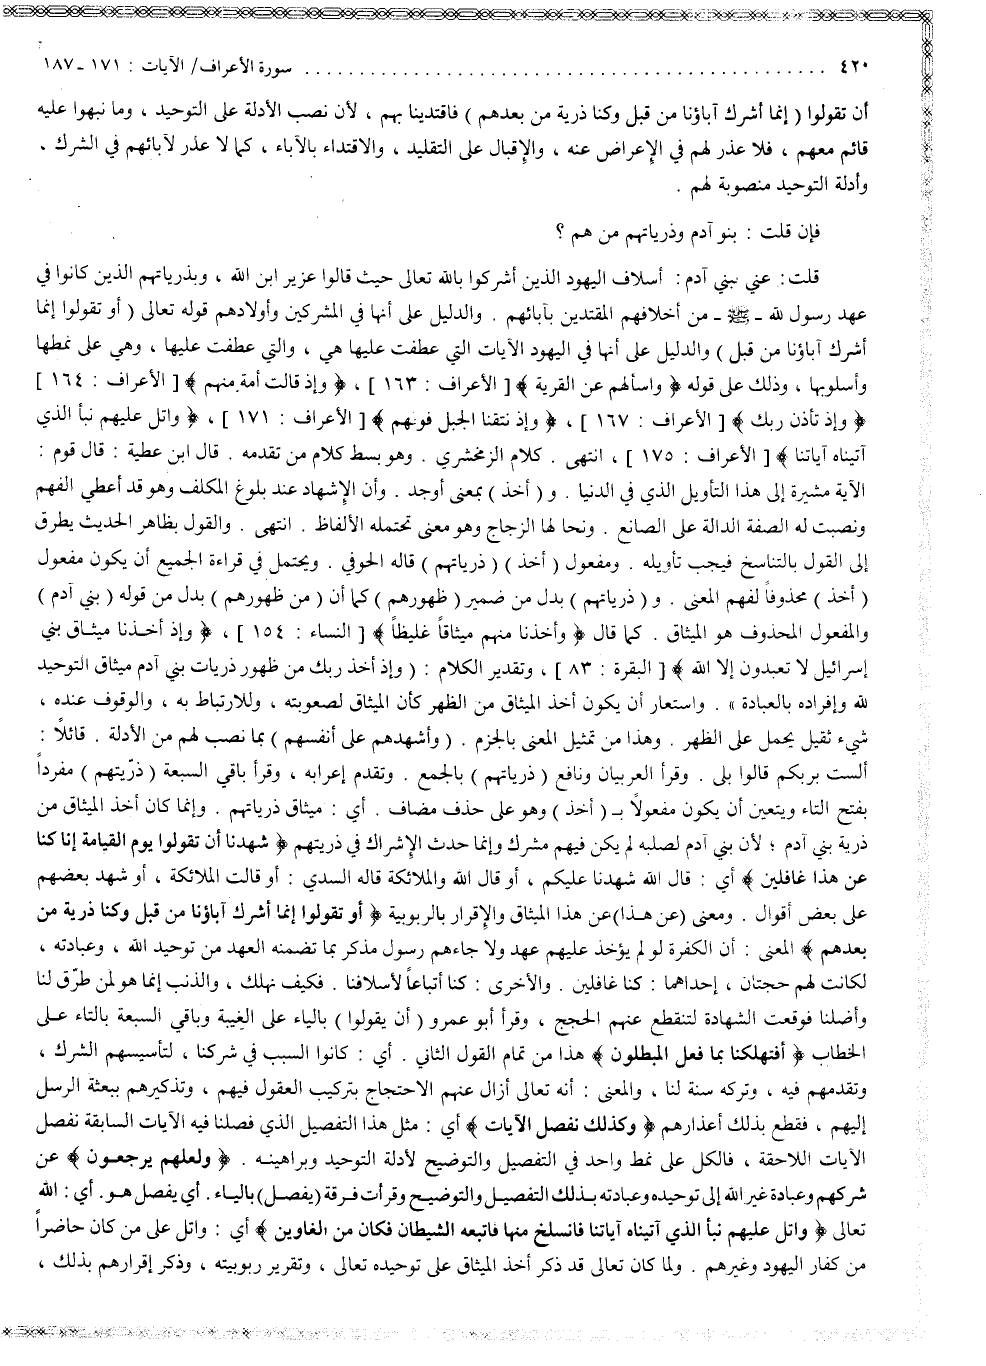 ٤٢٠ ................................................ سورة الأعراف/ الآيات : ١٧١ - ١٨٧
أن تقولوا ( إنما أشرك آباؤنا من قبل وكنا ذرية من بعدهم ) فاقتدينا بهم ، لأن نصب الأدلة على التوحيد ، وما نبهوا عليه
قائم معهم ، فلا عذر لهم في الإعراض عنه ، والإقبال على التقليد ، والاقتداء بالآباء ، كما لا عذر لآبائهم في الشرك ،
وأدلة التوحيد منصوبة لهم .
فإن قلت : بنو آدم وذرياتهم من هم ؟
قلت : عني ببني آدم : أسلاف اليهود الذين أشركوا بالله تعالى حيث قالوا عزير ابن الله ، وبذرياتهم الذين كانوا في
عهد رسول لله - ﷺ - من أخلافهم المقتدين بآبائهم . والدليل على أنها في المشركين وأولادهم قوله تعالى ( أو تقولوا إنما
أشرك آباؤنا من قبل ) والدليل على أنها في اليهود الآيات التي عطفت عليها هي ، والتي عطفت عليها ، وهي على نمطها
وأسلوبها ، وذلك على قوله ﴿ واسألهم عن القرية ﴾ [ الأعراف : ١٦٣ ] ، ﴿ وإذ قالت أمة منهم ﴾ [ الأعراف : ١٦٤ ]
﴿ وإذ تأذن ربك ﴾ [ الأعراف : ١٦٧ ] ، ﴿ وإذ نتقنا الجبل فوقهم ﴾ [ الأعراف : ١٧١ ] ، ﴿ واتل عليهم نبأ الذي
آتيناه آياتنا ﴾ [ الأعراف : ١٧٥ ] ، انتهى . كلام الزمخشري . وهو بسط كلام من تقدمه . قال ابن عطية : قال قوم :
الآية مشيرة إلى هذا التأويل الذي في الدنيا . و ( أخذ ) بمعنى أوجد . وأن الإشهاد عند بلوغ المكلف وهو قد أعطي الفهم
ونصبت له الصفة الدالة على الصانع . ونحا لها الزجاج وهو معنى تحتمله الألفاظ . انتهى . والقول بظاهر الحديث يطرق
إلى القول بالتناسخ فيجب تأويله . ومفعول ( أخذ ) ( ذرياتهم ) قاله الحوفي . ويحتمل في قراءة الجميع أن يكون مفعول
( أخذ ) محذوفاً لفهم المعنى . و ( ذرياتهم ) بدل من ضمير ( ظهورهم ) كما أن ( من ظهورهم ) بدل من قوله ( بني آدم )
والمفعول المحذوف هو الميثاق . كما قال ﴿ وأخذنا منهم ميثاقاً غليظاً ﴾ [ النساء : ١٥٤ ] ، ﴿ وإذ أخذنا ميثاق بني
إسرائيل لا تعبدون إلا الله ﴾ [ البقرة : ٨٣ ] ، وتقدير الكلام : ( وإذ أخذ ربك من ظهور ذريات بني آدم ميثاق التوحيد
لله وإفراده بالعبادة » . واستعار أن يكون أخذ الميثاق من الظهر كأن الميثاق لصعوبته ، وللارتباط به ، والوقوف عنده ،
شيء ثقيل يحمل على الظهر . وهذا من تمثيل المعنى بالجزم . ( وأشهدهم على أنفسهم ) بما نصب لهم من الأدلة . قائلاً :
ألست بربكم قالوا بلى . وقرأ العربيان ونافع ( ذرياتهم ) بالجمع . وتقدم إعرابه ، وقرأ باقي السبعة ( ذرّيتهم ) مفرداً
بفتح التاء ويتعين أن يكون مفعولاً بـ ( أخذ ) وهو على حذف مضاف . أي : ميثاق ذرياتهم . وإنما كان أخذ الميثاق من
ذرية بني آدم ؛ لأن بني آدم لصلبه لم يكن فيهم مشرك وإنما حدث الإشراك في ذريتهم ﴿ شهدنا أن تقولوا يوم القيامة إنا كنا
عن هذا غافلين ﴾ أي : قال الله شهدنا عليكم ، أو قال الله والملائكة قاله السدي : أو قالت الملائكة ، أو شهد بعضهم
على بعض أقوال . ومعنى (عن هذا) عن هذا الميثاق والإقرار بالربوبية ﴿ أو تقولوا إنما أشرك آباؤنا من قبل وكنا ذرية من
بعدهم ﴾ المعنى : أن الكفرة لو لم يؤخذ عليهم عهد ولا جاءهم رسول مذكر بما تضمنه العهد من توحيد الله ، وعبادته ،
لكانت لهم حجتان ، إحداهما : كنا غافلين . والأخرى : كنا أتباعاً لأسلافنا . فكيف نهلك ، والذنب إنما هو لمن طرّق لنا
وأضلنا فوقعت الشهادة لتنقطع عنهم الحجج ، وقرأ أبو عمرو ( أن يقولوا ) بالياء على الغيبة وباقي السبعة بالتاء على
الخطاب ﴿ أفتهلكنا بما فعل المبطلون ﴾ هذا من تمام القول الثاني . أي : كانوا السبب في شركنا ، لتأسيسهم الشرك ،
وتقدمهم فيه ، وتركه سنة لنا ، والمعنى : أنه تعالى أزال عنهم الاحتجاج بتركيب العقول فيهم ، وتذكيرهم ببعثة الرسل
إليهم ، فقطع بذلك أعذارهم ﴿ وكذلك نفصل الآيات ﴾ أي : مثل هذا التفصيل الذي فصلنا فيه الآيات السابقة نفصل
الآيات اللاحقة ، فالكل على نمط واحد في التفصيل والتوضيح لأدلة التوحيد وبراهينه . ﴿ ولعلهم يرجعون ﴾ عن
شركهم وعبادة غير الله إلى توحيده وعبادته بذلك التفصيل والتوضيح وقرأت فرقة (يفصل) بالياء . أي يفصل هو . أي : الله
تعالى ﴿ واتل عليهم نبأ الذي آتيناه آياتنا فانسلخ منها فاتبعه الشيطان فكان من الغاوين ﴾ أي : واتل على من كان حاضراً
من كفار اليهود وغيرهم . ولما كان تعالى قد ذكر أخذ الميثاق على توحيده تعالى ، وتقرير ربوبيته ، وذكر إقرارهم بذلك ،